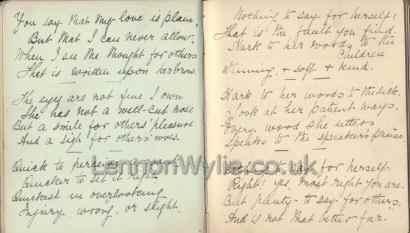 You say that my love is plain,
But that I can never allow,
When I see the thought for others
That is written upon her brow.
The eyes are not fine I own
She has not a well-cut nose
But a smile for others' pleasure
And a sigh for others' woes.
Quick to perceive a want
Quicker to set it right
Quickest in overlooking
Injury, wrong, or slight.
Nothing to say for herself!
That is the fault you find.
Hark to her words to the
children
Winning, soft & kind.
Hark to her words to the sick
Look at her patient ways.
Every word she utters
Speaks to the speaker's praise
say for herself
Right! yes, most right you are.
But plenty to say for others
And is not that better far.
LennonWylie.co.uk